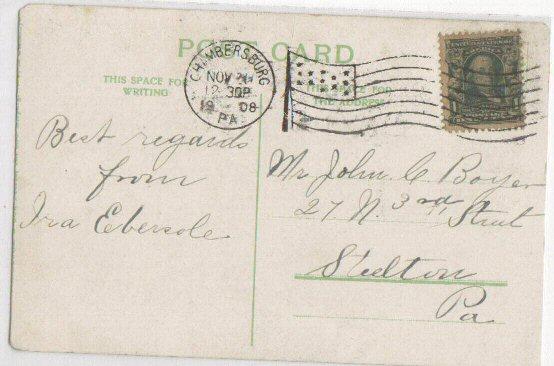 POST CARD
THIS SPACE FOR
WRITING
THIS SPACE FOR
THE ADDRESS
CHAMBERSBURG
NOV
12 30P
19 08
PA
Best regards
from
Ira Ebersole
Mr. John C Boyer
27 N. 3rd Street
Steelton
Pa